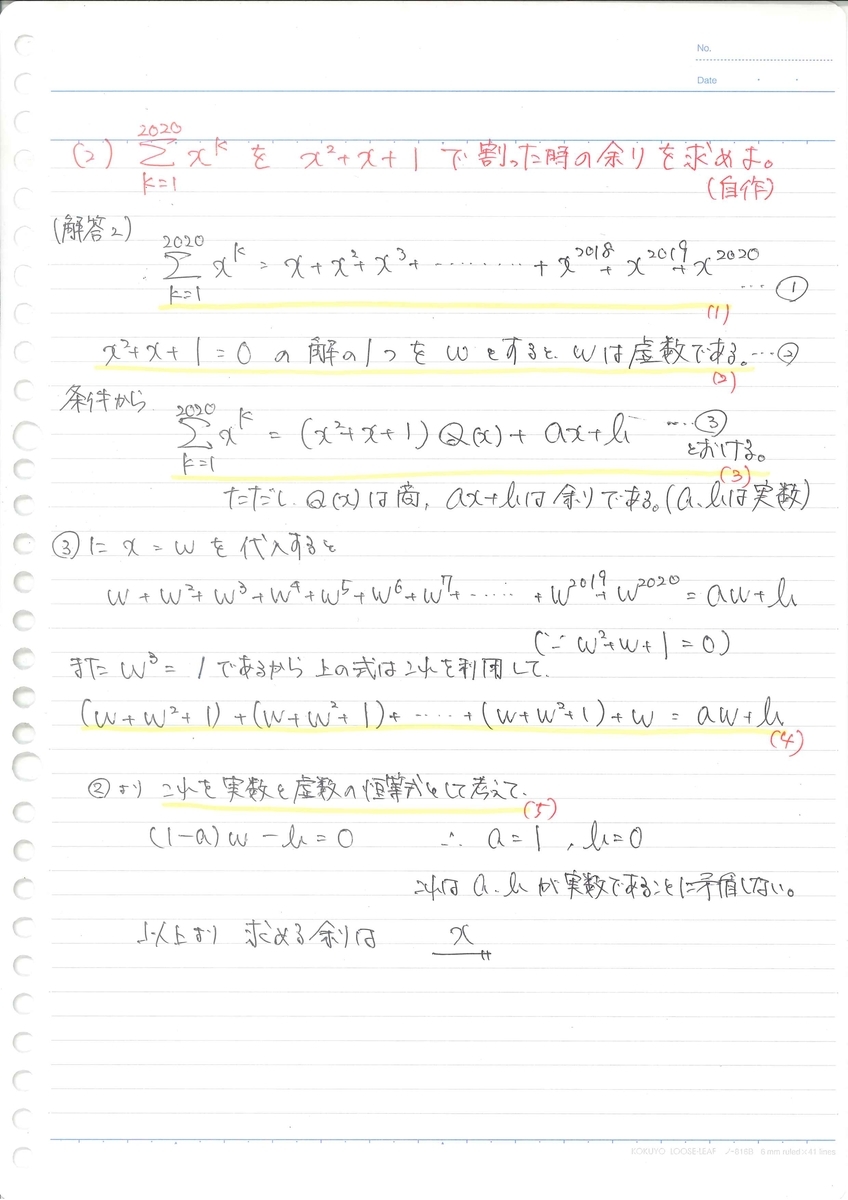 No.
Date
(2) 2020Σk=1 x^k を x²+x+1 で割った時の余りを求めよ。
(自作)
(解答2)
2020Σk=1 x^k = x+x²+x³+ ········· + x^2018 + x^2019 + x^2020 … ①
(1)
x²+x+1=0 の解の1つをwとすると、wは虚数である。…②
(2)
条件から
2020Σk=1 x^k = (x²+x+1)Q(x)+ax+b …③
とおける。
(3)
ただし、Q(x)は商, ax+bは余りである。(a、bは実数)
③に x=w を代入すると
w+w²+w³+w⁴+w⁵+w⁶+w⁷+······+w^2019+w^2020=aw+b
(∵ w²+w+1=0)
また w³=1であるから上の式はこれを利用して、
(w+w²+1)+(w+w²+1)+·····+(w+w²+1)+w=aw+b
(4)
②より これを実数と虚数の恒等式として考えて、
(5)
(1-a)w-b=0 ∴ a=1, b=0
これは a、b が実数であることに矛盾しない。
以上より 求める余りは x
KOKUYO LOOSE-LEAF ノ-816B 6mm ruled×41 lines